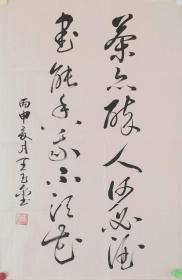 茶亦醉人何必酒
书能香我不须花
丙申夏月王玉玺